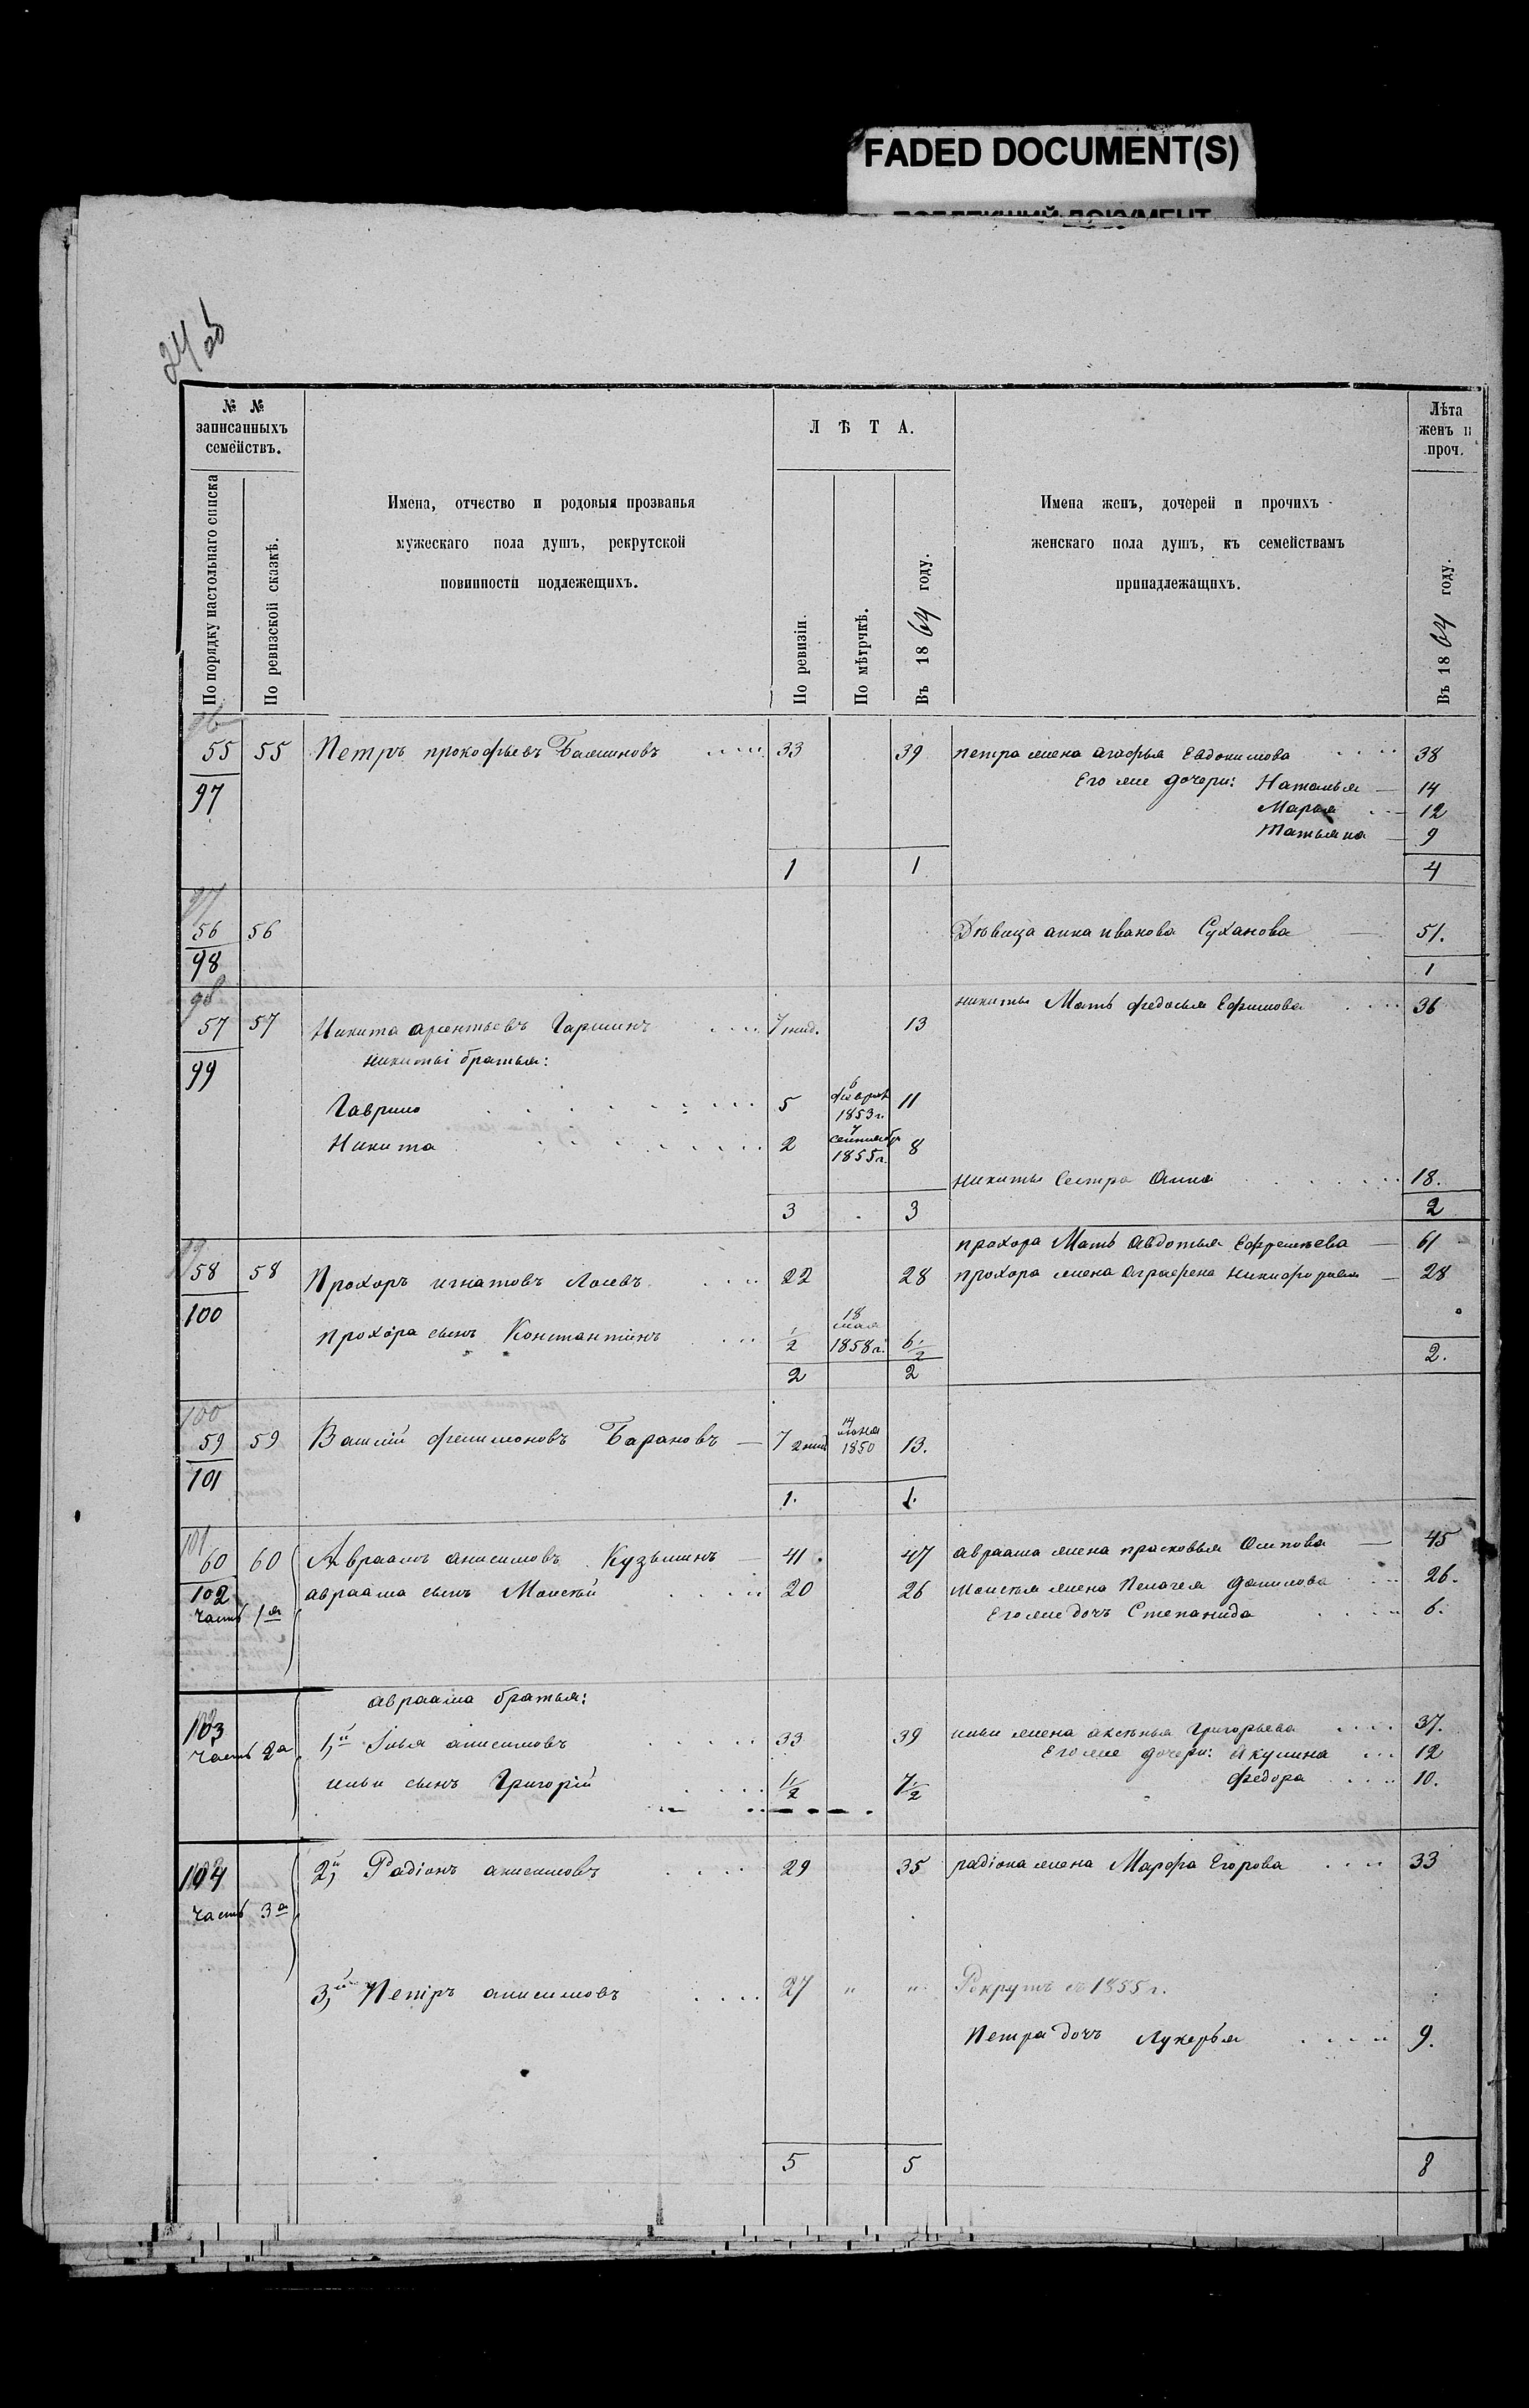 FADED DOCUMENT(S)
24 об
№ № записанныхъ семействъ.
По порядку настольнаго списка
По ревизской сказкѣ.
Имена, отчество и родовыя прозванья
мужескаго пола душъ, рекрутской
повинности подлежещихъ.
ЛѢТА.
По ревизіи.
По мѣтрчкѣ.
Въ 1864 году.
Имена женъ, дочерей и прочихъ
женскаго пола душъ, къ семействамъ
принадлежащихъ.
Лѣта женъ и проч.
Въ 1864 году.
96
55 55 Петръ прокофьевъ 33 39 петра жена агафья Евдокимова 38
97 Его же дочери: Наталья 14
Марья 12
Татьяна 9
1 1 4
97
56 56 Дѣвица анна иванова Суханова 51.
98 1
98 никиты Мать федосья Ефимова 36
57 57 Никита Гаршинъ 7 13
99 никиты братья:
Гаврило 5 6 1853 г. 11
Никита 2 7 сентябр 1855 г. 8
никиты сестра Анна 18.
3 3 2
99 прохора Мать авдотья 61
58 58 Прохоръ игнатовъ 22 28 прохора жена аграфена 28
100
прохора сынъ Константинъ 1/2 18 мая 1858 г. 6 1/2
2 2 2.
100
59 59 Василій филимоновъ Барановъ 7 14 1850 13.
101
1. 1.
101
60 60 Авраамъ анисимовъ Кузьминъ 41. 47 авраама жена прасковья Осипова 45
102 авраама сынъ Моисей 20 26 моисея жена Пелагея данилова 26.
часть 1я Его же дочь Степанида 6.
авраама братья:
103 1й Илья анисимовъ 33 39 ильи жена аксенья Григорьева 37.
часть 2а Его же дочери: Акулина 12
ильи сынъ Григорій 1 1/2 7 1/2 федора 10.
104 2й Радіонъ анисимовъ 29 35 радіона жена Марфа Егорова 33
часть 3а
3й Петръ анисимовъ 27 " " Рекрутъ съ 1855 г.
Петра дочь Лукерья 9.
5 5 8